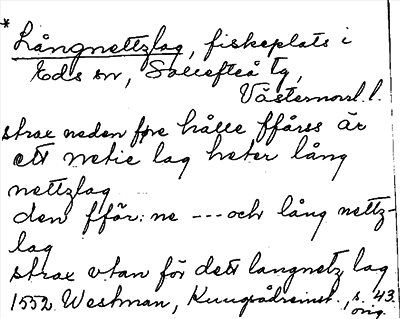 * Långnettzlag, fiskeplats i
Eds sn, Sollefteå tg,
Västernorrl. l.
strax neden före hålle ffårss är
ett netie lag heter lång
nettzlag
den fför: ne --- och lång nettz-
lag
strax vtan för dett langnetz lag
1552 Westman, Kungsådreinst., s. 43.
orig.